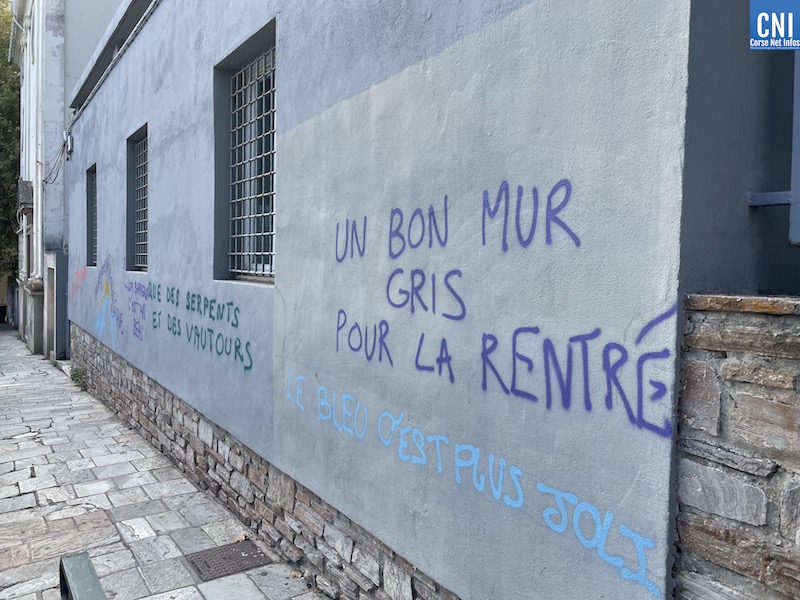 CNI
Corse Net Infos
UN BON MUR
GRIS
POUR LA RENTRÉ
LE BLEU C'EST PLUS JOLI
QUE DES SERPENTS
ET DES VAUTOURS
C'EST